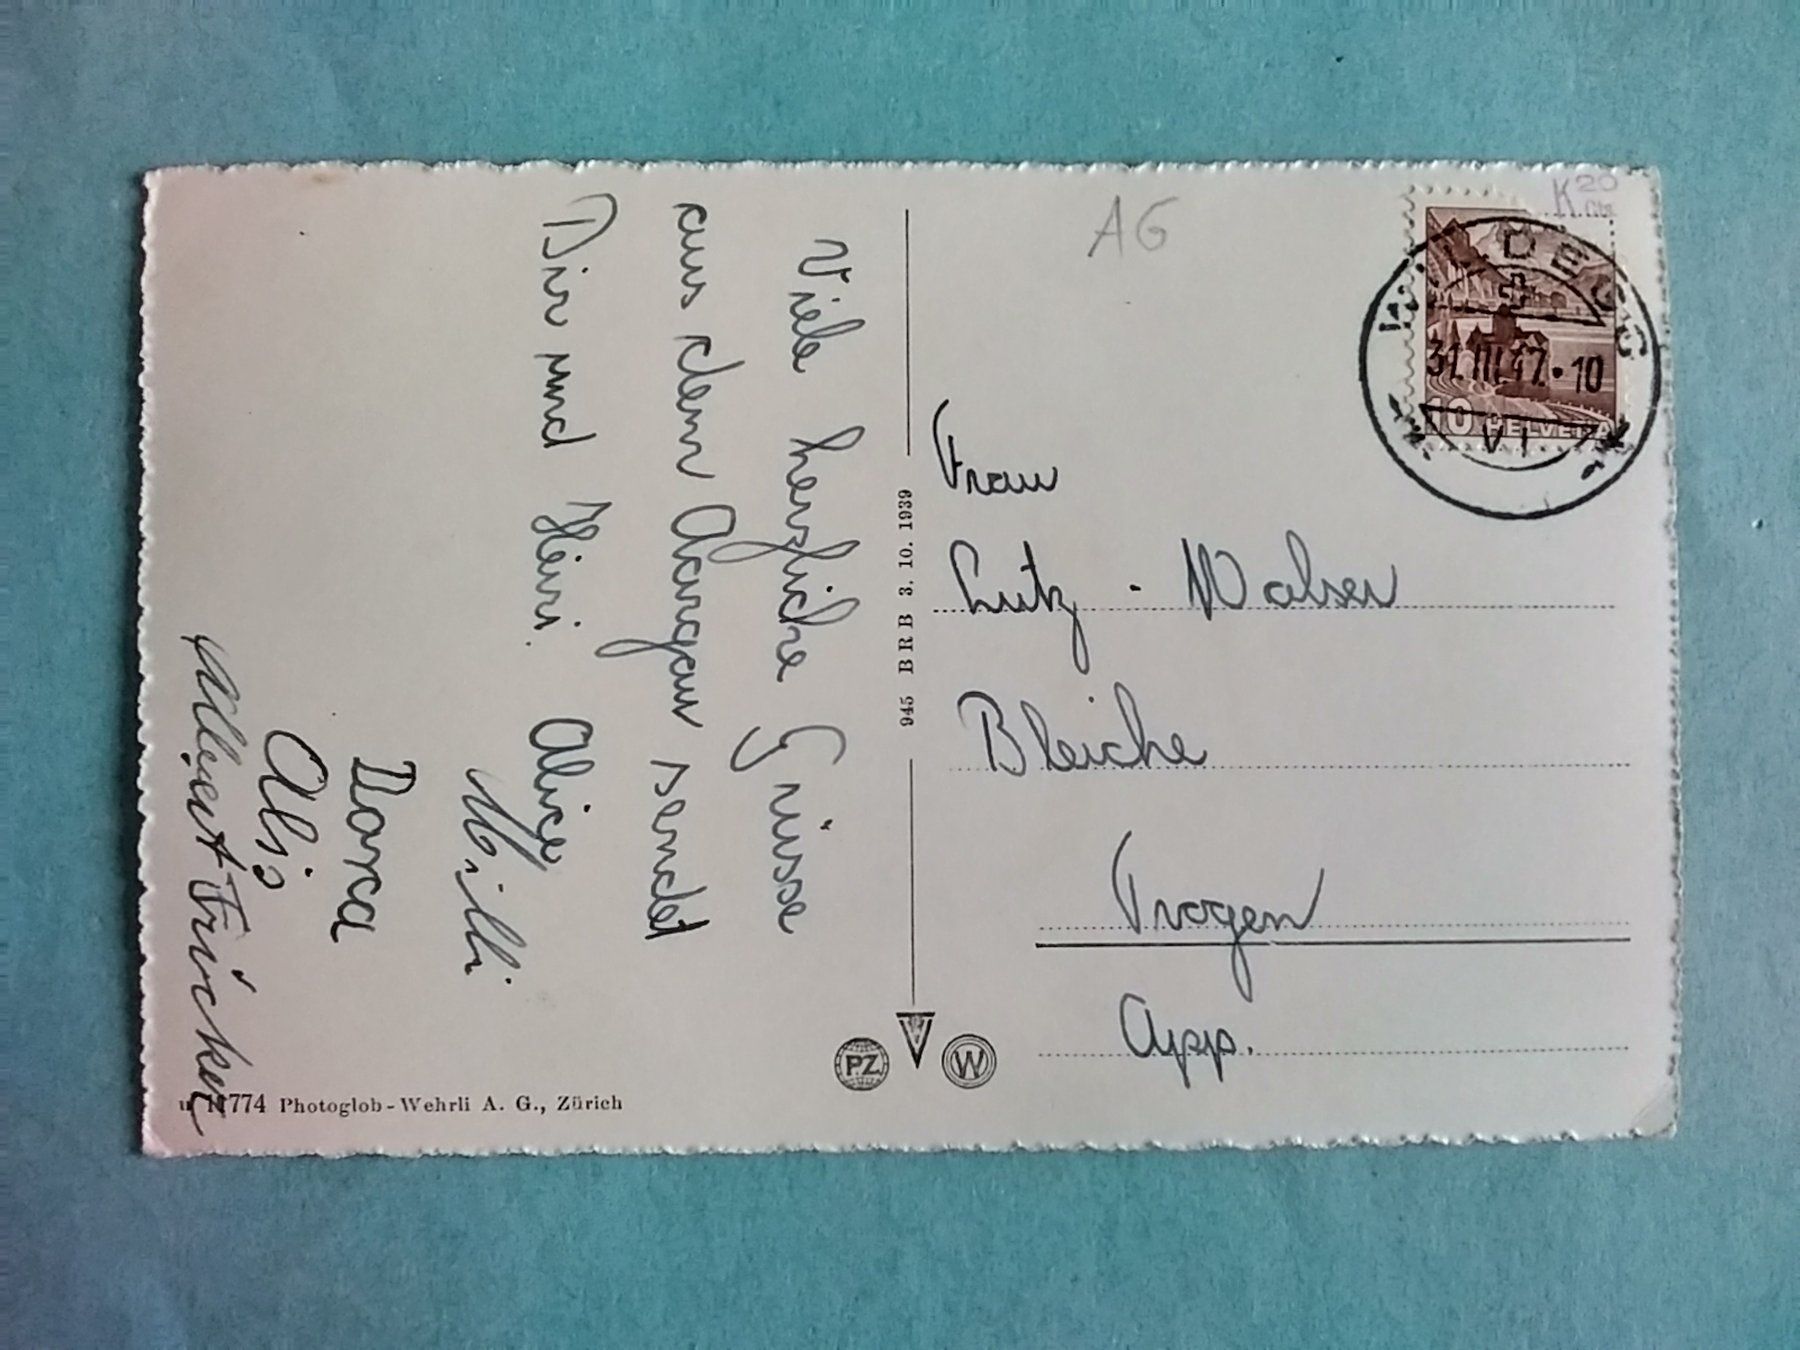 Viele herzliche Grüsse
aus dem Aargau sendet
Dir und Heiri. Alice
Milli
Dora
Alis
Fricker
11774 Photoglob-Wehrli A. G., Zürich
945 BRB 3. 10. 1939
PZ
W
AG
K 20
WILDEGG
31.III.47.10
VI
10 HELVETIA
Frau
Lutz - Walser
Bleiche
Trogen
App.